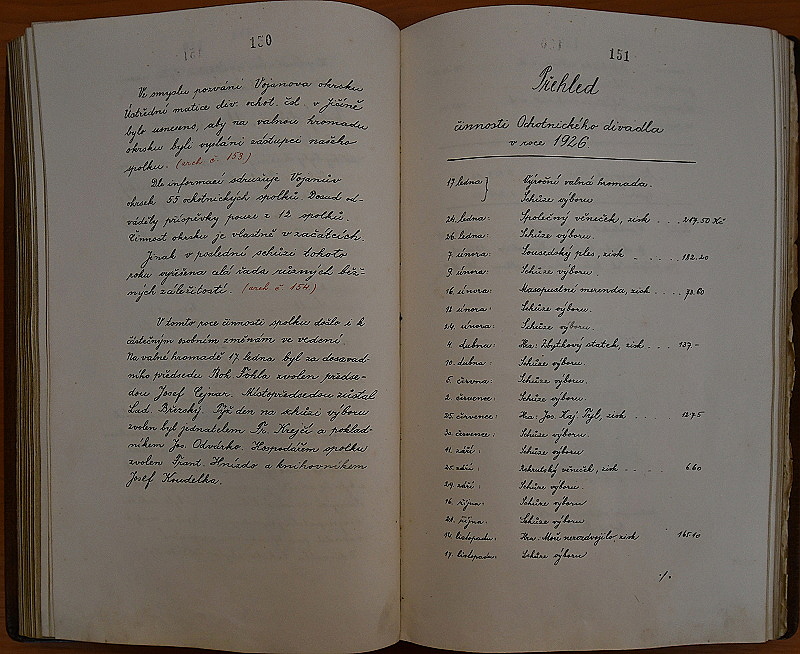 150
Ve smyslu pozvání Vojanova okrsku
Ústřední matice div. ochot. čsl. v Jičíně
bylo usneseno, aby na valnou hromadu
okrsku byli vysláni zástupci našeho
spolku. (arch. č. 153.)
Dle informací sdružuje Vojanův
okrsek 55 ochotnických spolků. Dosud od-
váděly příspěvky pouze z 12 spolků.
Činnost okrsku je vlastně v začátcích.
Jinak v poslední schůzi tohoto
roku vyřízena celá řada různých běž-
ných záležitostí. (arch. č. 154.)
V tomto roce činnosti spolku došlo i k
částečným osobním změnám ve vedení.
Na valné hromadě 17. ledna byl za dosavad-
ního předsedu Boh. Fohla zvolen předse-
dou Josef Cejnar. Místopředsedou zůstal
Lad. Brzeský. Týž den na schůzi výboru
zvolen byl jednatelem Fr. Krejčí a poklad-
níkem Jos. Odvárko. Hospodářem spolku
zvolen Frant. Hnízdo a knihovníkem
Josef Koudelka.
151
Přehled
činnosti Ochotnického divadla
v roce 1926.
17 ledna: Výroční valná hromada.
Schůze výboru
24. ledna: Společný věneček, zisk . . . . 247.50 Kč
26. ledna: Schůze výboru.
7. února: Sousedský ples, zisk . . . . 182.20
9. února: Schůze výboru.
16. února: Masopustní merenda, zisk . . . . 73.60
Schůze výboru.
24. února: Schůze výboru.
4. dubna: Hra: Zbytkový statek, zisk . . . 137 -
10. dubna: Schůze výboru.
5. června: Schůze výboru.
2. červenec: Schůze výboru.
25. července: Hra: Jos. Kaj. Tyl, zisk . . . 127.5
30. července: Schůze výboru.
11. září: Schůze výboru.
25. září: Rekrutský věneček, zisk . . . . 6.60
29. září: Schůze výboru.
16. října: Schůze výboru
21. října: Schůze výboru
14. listopadu: Hra: Moře nerozdvojilo, zisk 165.10
17. listopadu: Schůze výboru
./.